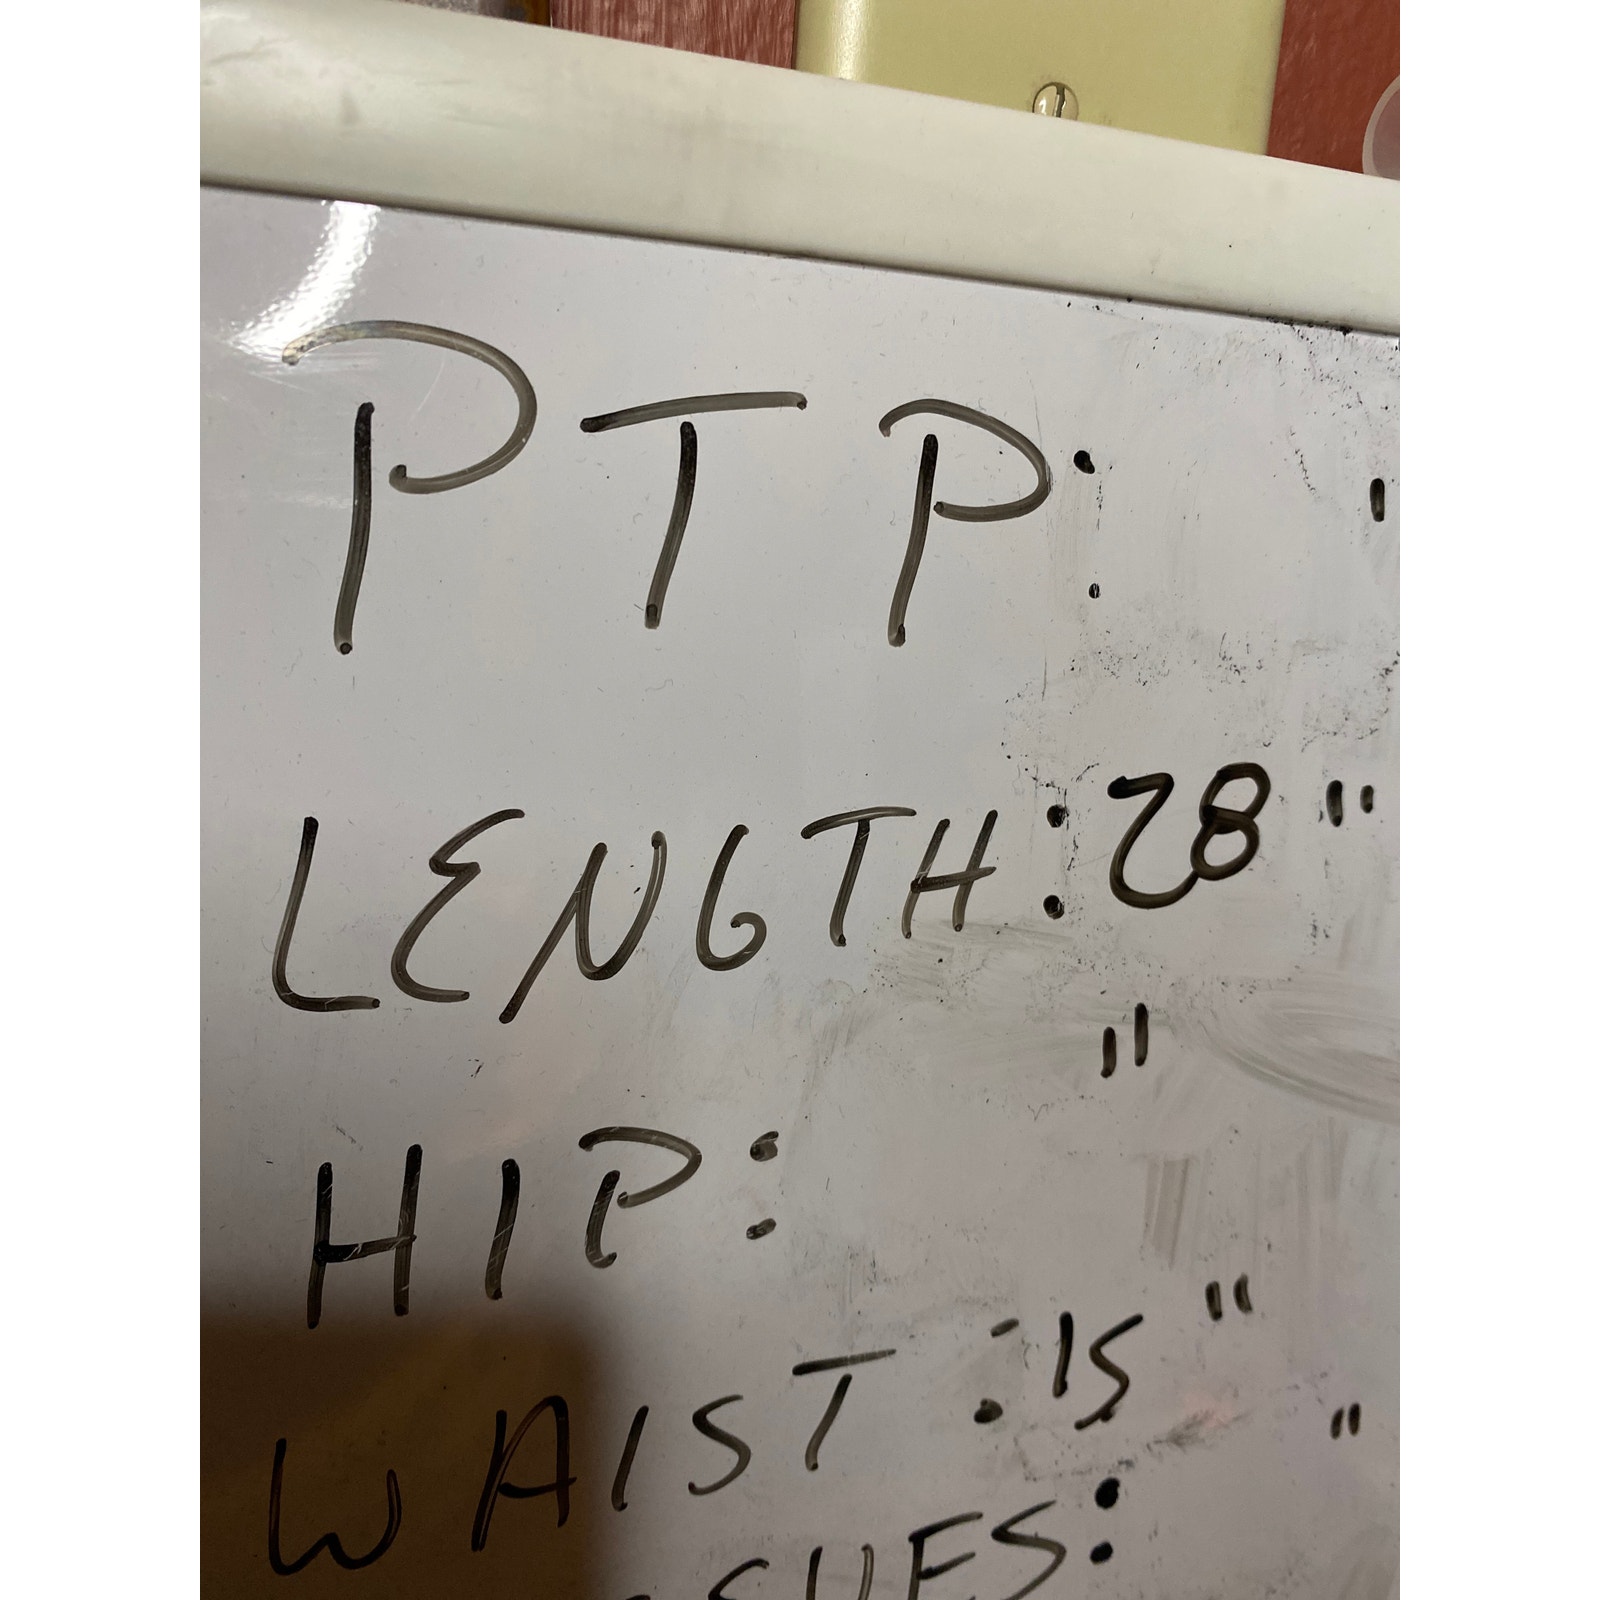 PTP: "
LENGTH: 28"
HIP: "
WAIST: 15"